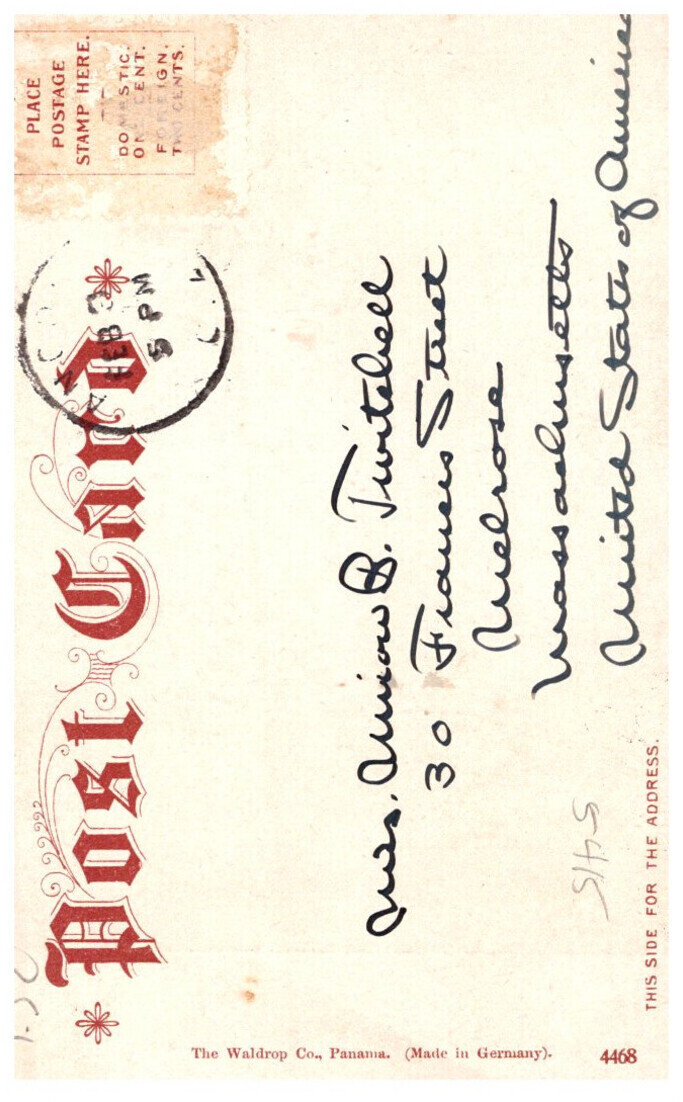 Post Card
PLACE
POSTAGE
STAMP HERE.
DOMESTIC.
ONE CENT.
FOREIGN.
TWO CENTS.
FEB
5 PM
Mrs. B. Twitchell
30 Francis Street
Melrose
Massachusetts
United States of America
THIS SIDE FOR THE ADDRESS.
The Waldrop Co., Panama. (Made in Germany).
4468